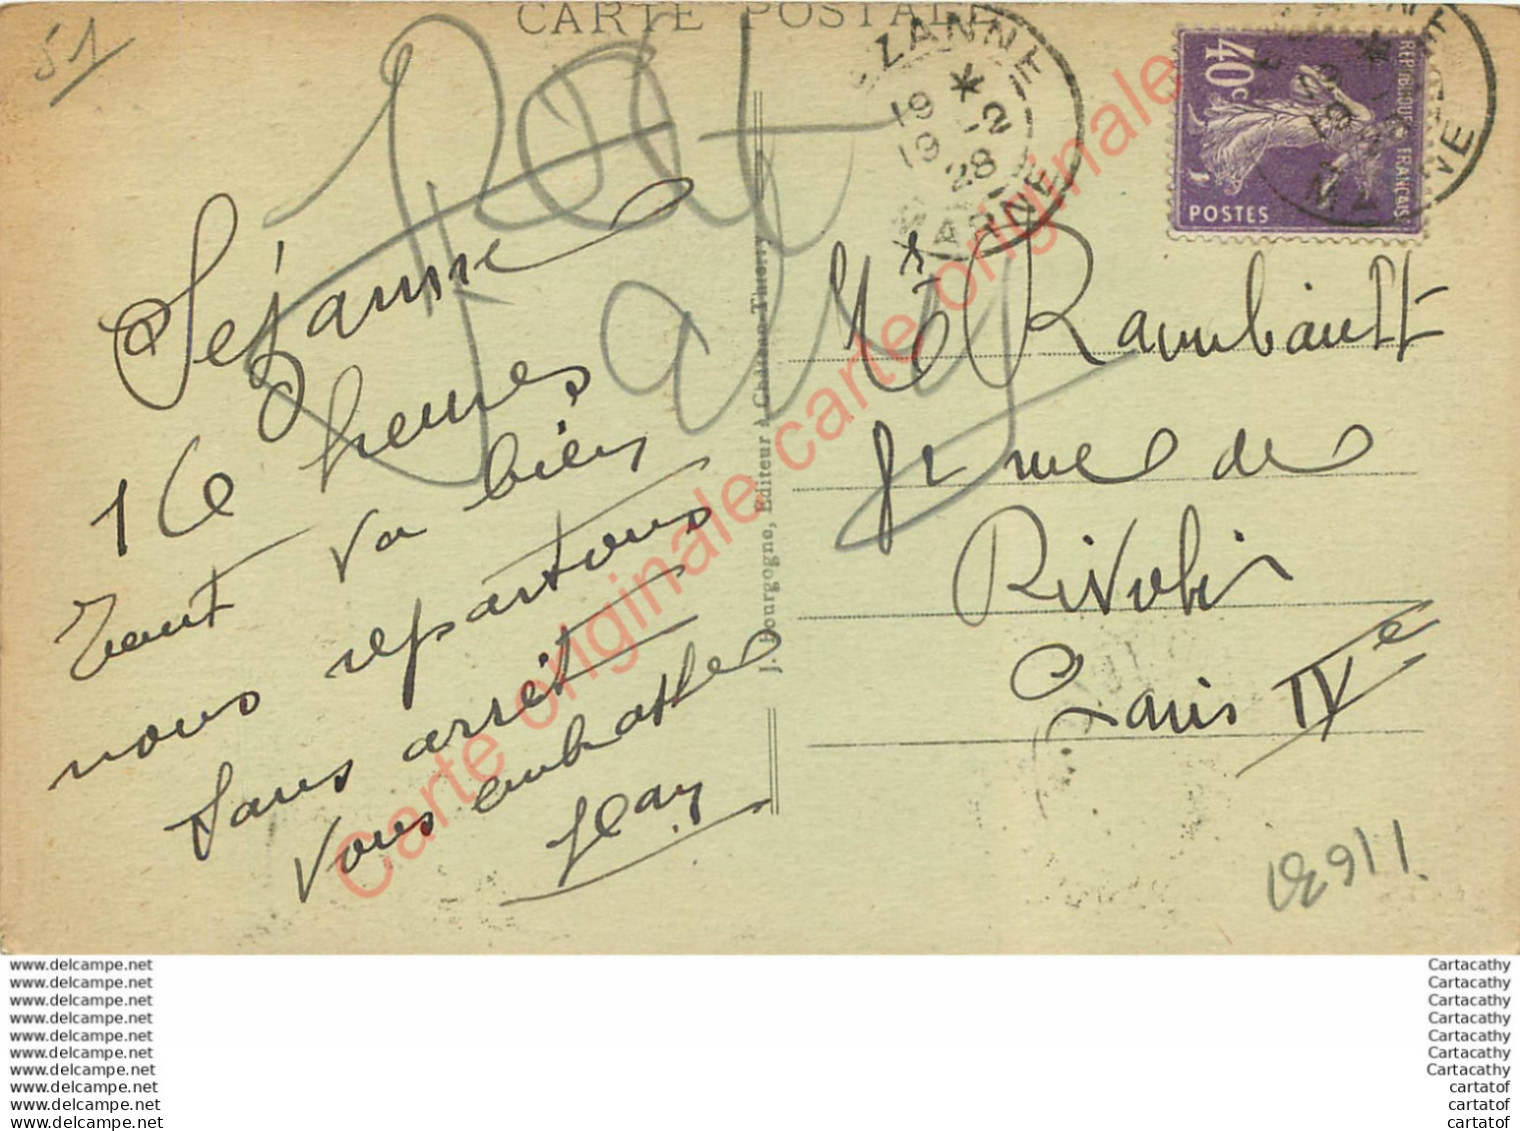 CARTE POSTALE
51
Sézanne
16 heures
tout va bien
nous repartons
sans arrêt
Vous embrasse
Jean
J. Bourgogne, Editeur à Château-Thierry
EZANNE
19 *
19 -2
28
MARNE
40c
REPUBLIQUE FRANÇAISE
POSTES
MARNE
Mr Rambault
rue de
Rivoli
Paris IVe
Carte originale carte originale carte originale
www.delcampe.net
www.delcampe.net
www.delcampe.net
www.delcampe.net
www.delcampe.net
www.delcampe.net
www.delcampe.net
www.delcampe.net
www.delcampe.net
www.delcampe.net
Cartacathy
Cartacathy
Cartacathy
Cartacathy
Cartacathy
Cartacathy
Cartacathy
cartatof
cartatof
cartatof